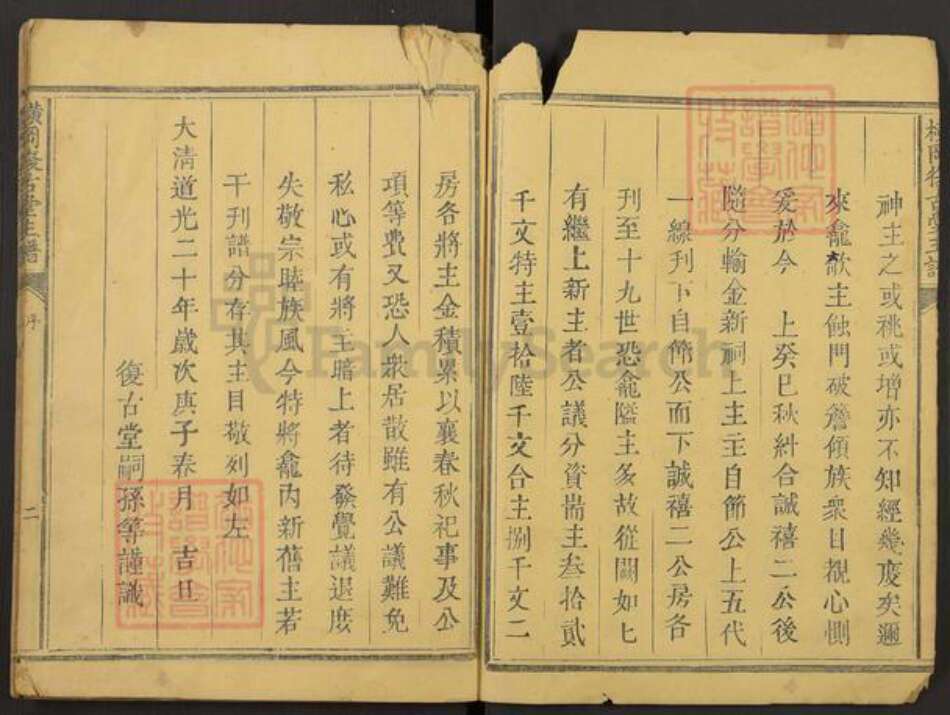 神主之或祧或增亦不知經幾度矣邇
來龕歆主蝕門破簷傾族衆目覩心惻
爰於今　上癸巳秋糾合誠禧二公後
隨分輸金新祠上主主自節公上五代
一線刋下自節公而下誠禧二公房各
刋至十九世恐龕隘主多故從闕如匕
有繼上新主者公議分資耑主叁拾貳
千文特主壹拾陸千文合主捌千文二
房各將主金積累以襄春秋祀事及公
項等費又恐人衆居散雖有公議難免
私心或有將主暗上者待發覺議退庶
失敬宗睦族風今特將龕內新舊主若
干刋譜分存其主目敬列如左
大清道光二十年歲次庚子春月　吉旦
復古堂嗣孫等謹識
復古堂主譜
序
二
FamilySearch